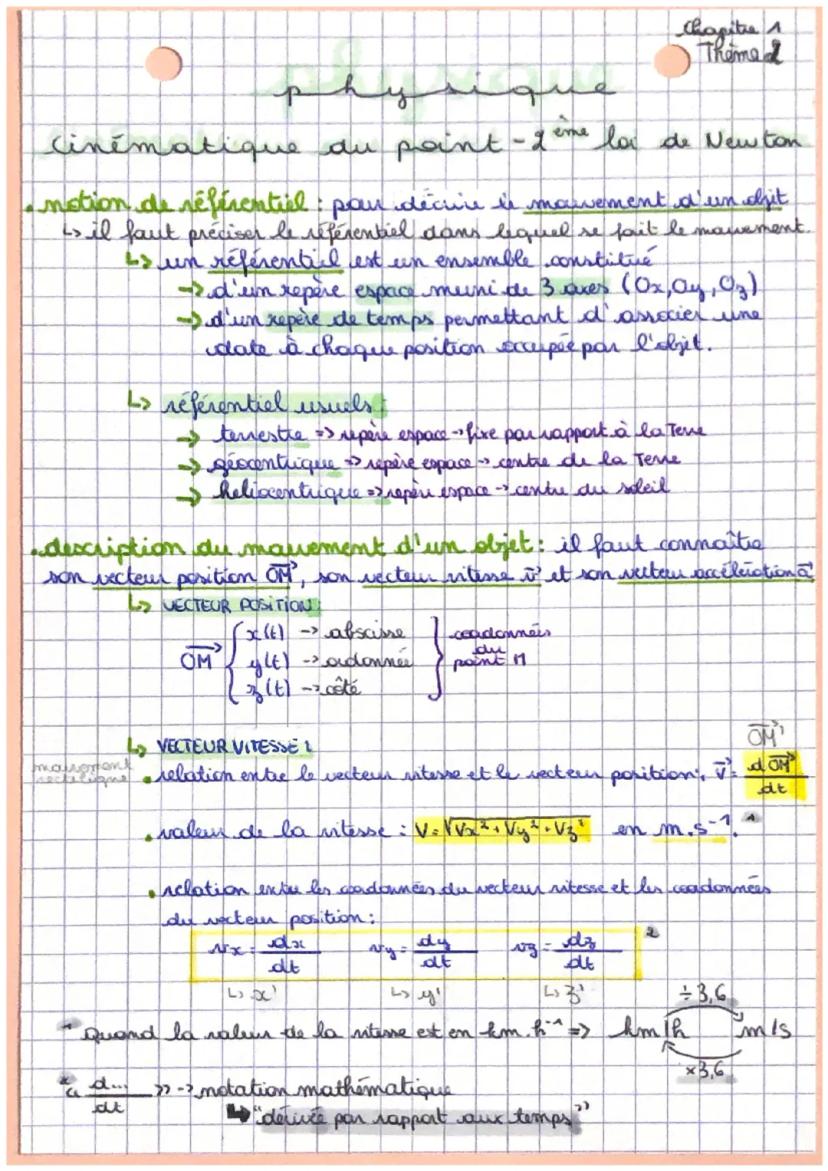 Chapitre 1
Thème 2
physique
cinématique du point - 2ème loi de Newton
• notion de référentiel : pour décrire le mouvement d'un objet
↳ il faut préciser le référentiel dans lequel se fait le mouvement.
↳ un référentiel est un ensemble constitué
→ d'un repère espace muni de 3 axes (Ox, Oy, Oz)
→ d'un repère de temps permettant d'associer une
date à chaque position occupée par l'objet.
↳ référentiel usuels :
→ terrestre => repère espace → fixe par rapport à la Terre
→ géocentrique => repère espace → centre de la Terre
→ héliocentrique => repère espace → centre du soleil
• description du mouvement d'un objet : il faut connaître
son vecteur position OM⃗, son vecteur vitesse v⃗ et son vecteur accélération a⃗
↳ VECTEUR POSITION :
OM⃗ { x(t) → abscisse
y(t) → ordonnée
z(t) → côté
} coordonnées
du
point M
↳ VECTEUR VITESSE :
OM⃗'
mouvement
rectiligne
• relation entre le vecteur vitesse et le vecteur position : v⃗ = dOM⃗/dt
• valeur de la vitesse : V = √Vx² + Vy² + Vz² en m.s⁻¹. ¹
• relation entre les coordonnées du vecteur vitesse et les coordonnées
du vecteur position :
vx = dx/dt vy = dy/dt vz = dz/dt ²
↳ x' ↳ y' ↳ z'
÷3,6
¹ Quand la valeur de la vitesse est en km.h⁻¹ => km/h m/s
×3,6
² « d.../dt » → notation mathématique
↳ "dérivée par rapport aux temps"